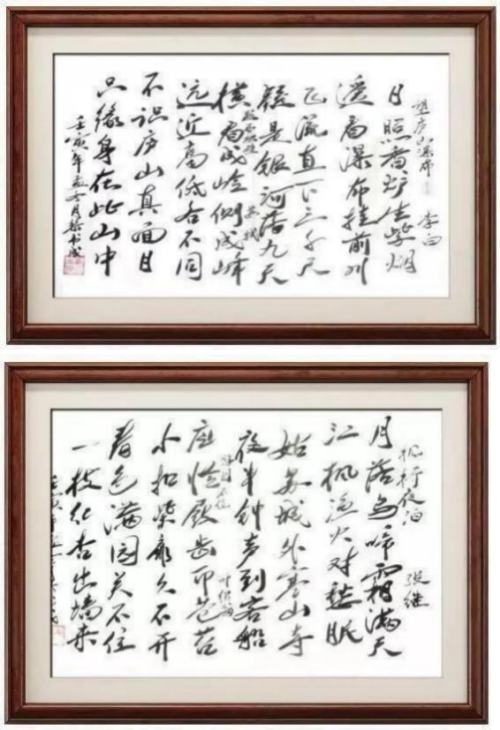 望庐山瀑布 李白
日照香炉生紫烟
遥看瀑布挂前川
飞流直下三千尺
疑是银河落九天
题西林壁 苏轼
横看成岭侧成峰
远近高低各不同
不识庐山真面目
只缘身在此山中
壬寅年
枫桥夜泊 张继
月落乌啼霜满天
江枫渔火对愁眠
姑苏城外寒山寺
夜半钟声到客船
游园不值 叶绍翁
应怜屐齿印苍苔
小扣柴扉久不开
春色满园关不住
一枝红杏出墙来